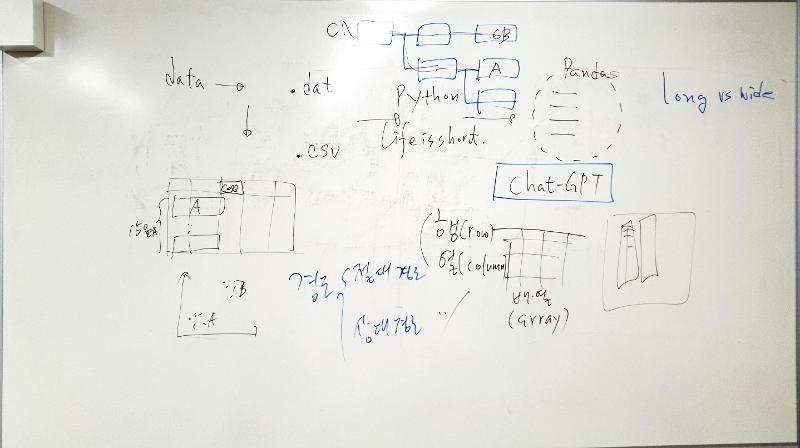 C:\
GB
A
data
.dat
Python
Pandas
long vs wide
Life is short.
.csv
Chat-GPT
A
행(row)
열(column)
배열
(array)
경로
절대경로
상대경로
B
A